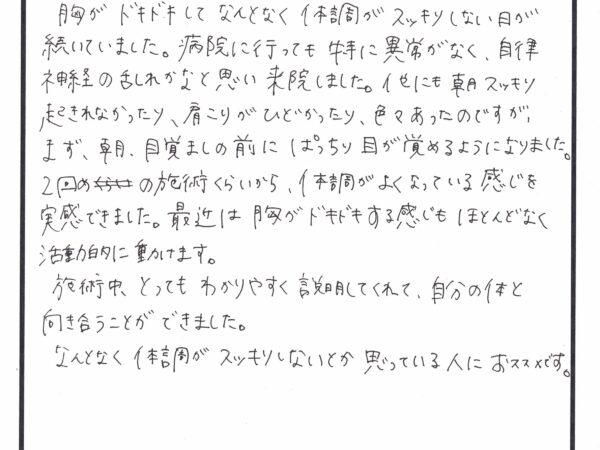 胸が ドキドキして なんとなく 体調が スッキリしない日が
続いていました。病院に行っても 特に 異常がなく、自律
神経の乱れかなと思い 来院しました。他にも 朝スッキリ
起きれなかったり、肩こりが ひどかったり、色々あったのですが、
まず、朝、目覚ましの前に ぱっちり 目が覚めるようになりました。
2回め の施術くらいから、体調がよくなっている 感じを
実感できました。最近は 胸がドキドキする感じも ほとんどなく
活動的に動けます。
施術中、とっても わかりやすく 説明してくれて、自分の体と
向き合うことが できました。
なんとなく 体調が スッキリしないとか 思っている人に おススメです。